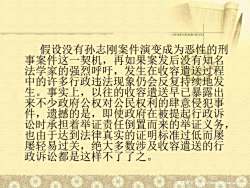 假设没有孙志刚案件演变成为恶性的刑
事案件这一契机，再如果案发后没有知名
法学家的强烈呼吁，发生在收容遣送过程
中的许多行政违法现象仍会反复持续地发
生。事实上，以往的收容遣送早已暴露出
来不少政府公权对公民权利的肆意侵犯事
件，遗憾的是，即使政府在被提起行政诉
讼时承担着举证责任倒置而来的举证义务，
也由于达到法律真实的证明标准过低而屡
屡轻易过关，绝大多数涉及收容遣送的行
政诉讼都是这样不了了之。